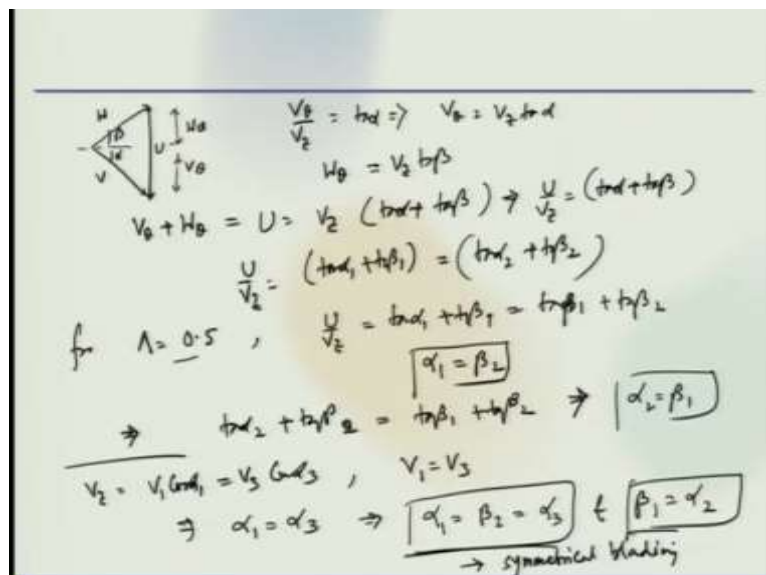 W
β
α
V
U
Wθ
Vθ
Vθ/Vz = tanα ⇒ Vθ = Vz tanα
Wθ = Vz tanβ
Vθ + Wθ = U = Vz (tanα + tanβ) ⇒ U/Vz = (tanα + tanβ)
U/Vz = (tanα₁ + tanβ₁) = (tanα₂ + tanβ₂)
for Λ = 0.5 , U/Vz = tanα₁ + tanβ₁ = tanβ₁ + tanβ₂
α₁ = β₂
⇒ tanα₂ + tanβ₂ = tanβ₁ + tanβ₂ ⇒ α₂ = β₁
Vz = V₁ Cosα₁ = V₃ Cosα₃ , V₁ = V₃
⇒ α₁ = α₃ ⇒ α₁ = β₂ = α₃ & β₁ = α₂
→ symmetrical blading